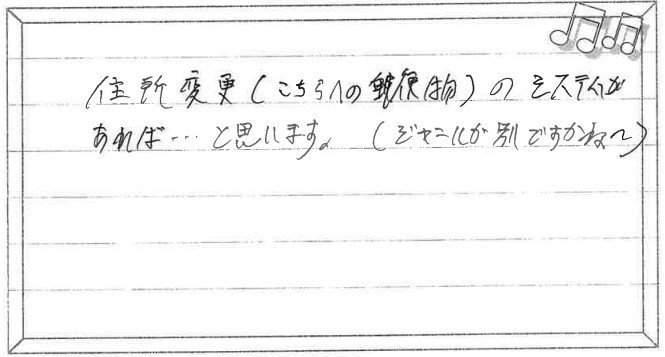 住所変更(こちらへの郵便物)のシステムが
あれば…と思います。(ジャンルが別ですかね〜)